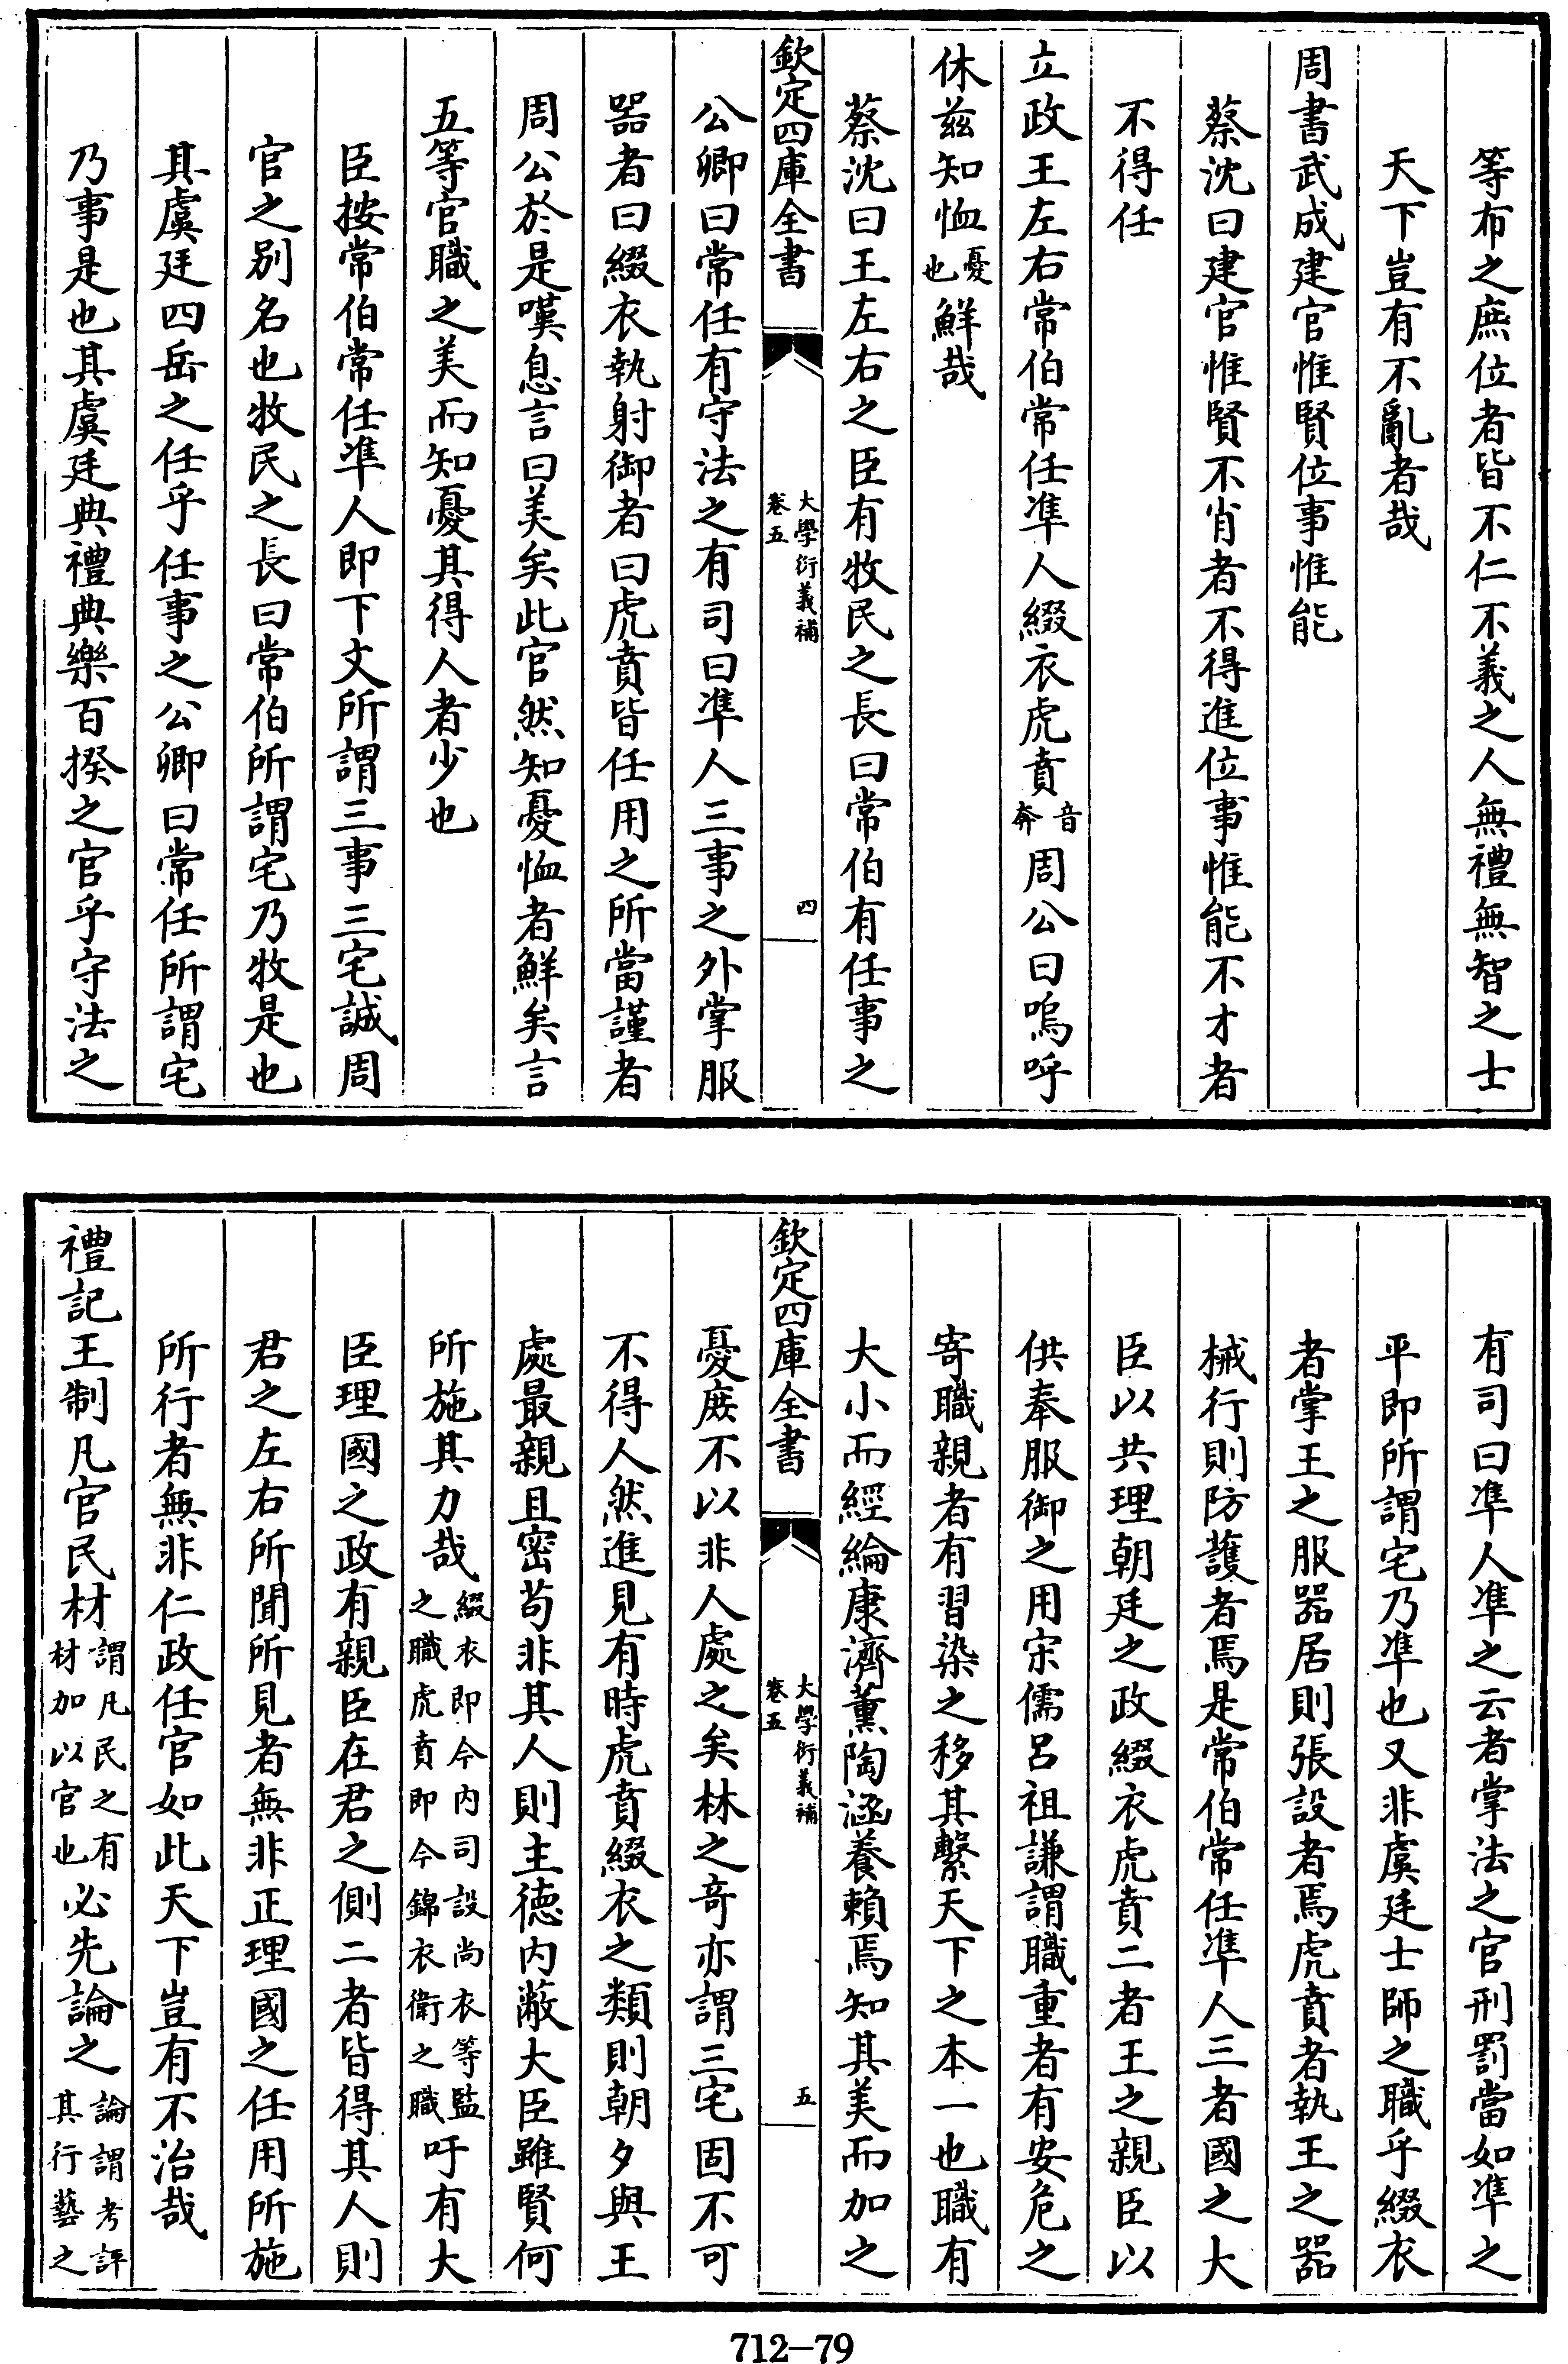 等布之庶位者皆不仁不義之人無禮無智之士
天下豈有不亂者哉
周書武成建官惟賢位事惟能
蔡沈曰建官惟賢不肖者不得進位事惟能不才者
不得任
立政王左右常伯常任準人綴衣虎賁音奔周公曰嗚呼
休兹知恤憂也鮮哉
蔡沈曰王左右之臣有牧民之長曰常伯有任事之
欽定四庫全書
大學衍義補
卷五
四
公卿曰常任有守法之有司曰準人三事之外掌服
器者曰綴衣執射御者曰虎賁皆任用之所當謹者
周公於是嘆息言曰美矣此官然知憂恤者鮮矣言
五等官職之美而知憂其得人者少也
臣按常伯常任準人即下文所謂三事三宅誠周
官之别名也牧民之長曰常伯所謂宅乃牧是也
其虞廷四岳之任乎任事之公卿曰常任所謂宅
乃事是也其虞廷典禮典樂百揆之官乎守法之
有司曰準人準之云者掌法之官刑罰當如準之
平即所謂宅乃準也又非虞廷士師之職乎綴衣
者掌王之服器居則張設者焉虎賁者執王之器
械行則防護者焉是常伯常任準人三者國之大
臣以共理朝廷之政綴衣虎賁二者王之親臣以
供奉服御之用宋儒呂祖謙謂職重者有安危之
寄職親者有習染之移其繫天下之本一也職有
大小而經綸康濟薫陶涵養賴焉知其美而加之
欽定四庫全書
大學衍義補
卷五
五
憂庻不以非人處之矣林之奇亦謂三宅固不可
不得人然進見有時虎賁綴衣之類則朝夕與王
處最親且密苟非其人則主德内蔽大臣雖賢何
所施其力哉綴衣即今内司設尚衣等監之職虎賁即今錦衣衛之職吁有大
臣理國之政有親臣在君之側二者皆得其人則
君之左右所聞所見者無非正理國之任用所施
所行者無非仁政任官如此天下豈有不治哉
禮記王制凡官民材謂凡民之有材加以官也必先論之論謂考評其行藝之
712-79